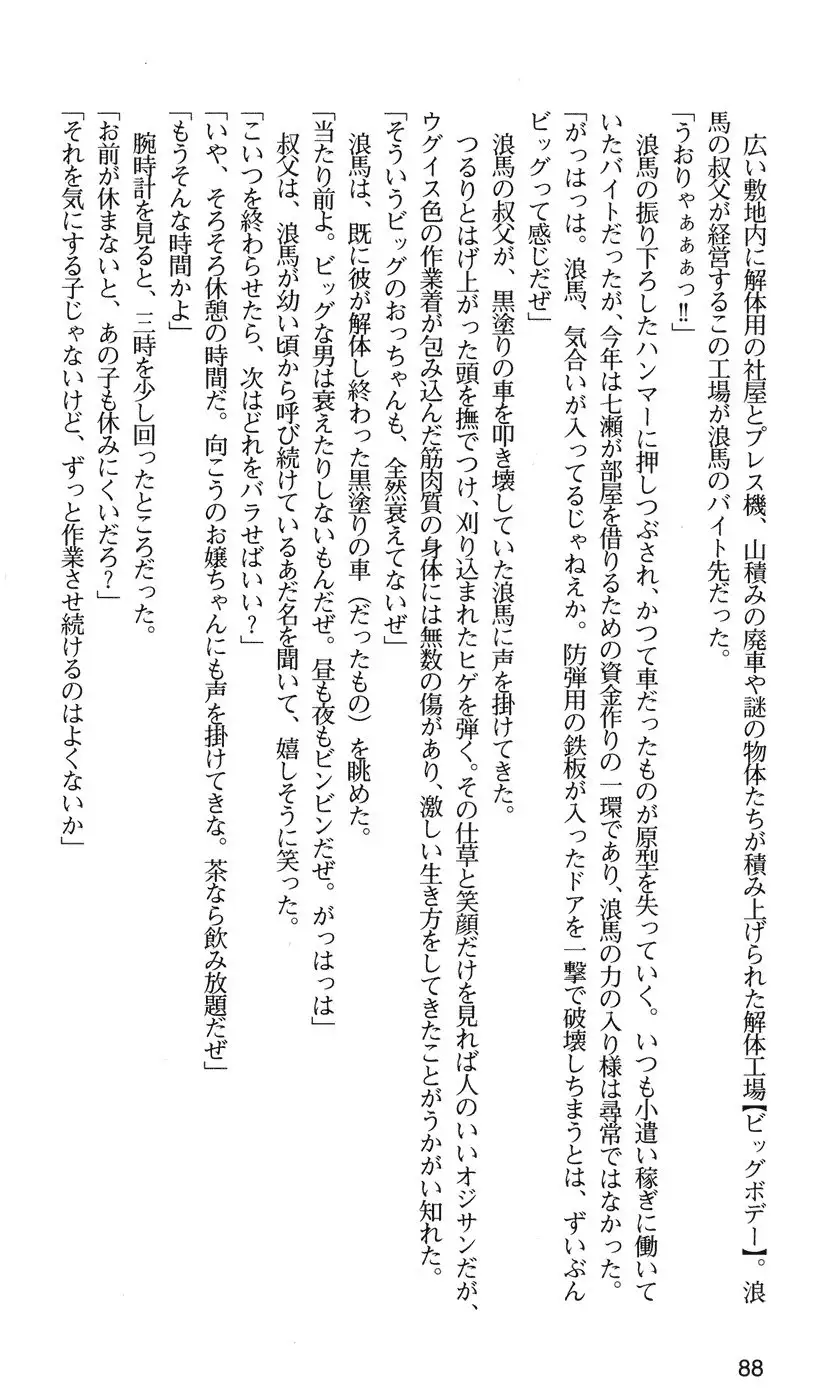 広い敷地内に解体用の社屋とプレス機、山積みの廃車や謎の物体たちが積み上げられた解体工場【ビッグボデー】。浪
馬の叔父が経営するこの工場が浪馬のバイト先だった。
「うおりゃぁぁぁっ!!」
　浪馬の振り下ろしたハンマーに押しつぶされ、かつて車だったものが原型を失っていく。いつも小遣い稼ぎに働いて
いたバイトだったが、今年は七瀬が部屋を借りるための資金作りの一環であり、浪馬の力の入り様は尋常ではなかった。
「がっはっは。浪馬、気合いが入ってるじゃねえか。防弾用の鉄板が入ったドアを一撃で破壊しちまうとは、ずいぶん
ビッグって感じだぜ」
　浪馬の叔父が、黒塗りの車を叩き壊していた浪馬に声を掛けてきた。
　つるりとはげ上がった頭を撫でつけ、刈り込まれたヒゲを弾く。その仕草と笑顔だけを見れば人のいいオジサンだが、
ウグイス色の作業着が包み込んだ筋肉質の身体には無数の傷があり、激しい生き方をしてきたことがうかがい知れた。
「そういうビッグのおっちゃんも、全然衰えてないぜ」
　浪馬は、既に彼が解体し終わった黒塗りの車（だったもの）を眺めた。
「当たり前よ。ビッグな男は衰えたりしないもんだぜ。昼も夜もビンビンだぜ。がっはっは」
　叔父は、浪馬が幼い頃から呼び続けているあだ名を聞いて、嬉しそうに笑った。
「こいつを終わらせたら、次はどれをバラせばいい？」
「いや、そろそろ休憩の時間だ。向こうのお嬢ちゃんにも声を掛けてきな。茶なら飲み放題だぜ」
「もうそんな時間かよ」
　腕時計を見ると、三時を少し回ったところだった。
「お前が休まないと、あの子も休みにくいだろ？」
「それを気にする子じゃないけど、ずっと作業させ続けるのはよくないか」
88